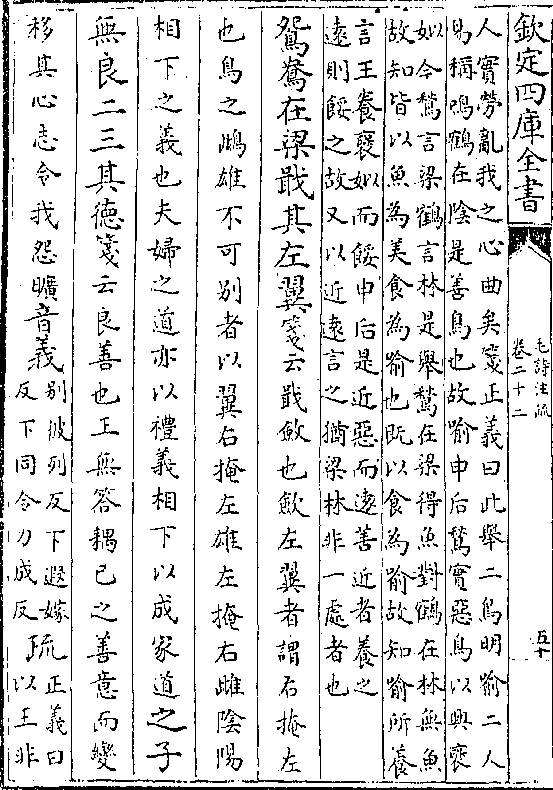 欽定四庫全書
毛詩注疏
卷二十二
五十
人實勞亂我之心曲矣箋正義曰此舉二鳥明喻二人
易稱鳴鶴在陰是善鳥也故喻申后鶖實惡鳥以興褒
姒今鶖言梁鶴言林是舉鶖在梁得魚對鶴在林無魚
故知皆以魚為美食為喻也既以食為喻故知喻所養
言王養褒姒而餒申后是近惡而遠善近者養之
遠則餒之故又以近遠言之猶梁林非一處者也
鴛鴦在梁戢其左翼箋云戢斂也斂左翼者謂右掩左
也鳥之鴟雄不可別者以翼右掩左雄左掩右雌陰陽
相下之義也夫婦之道亦以禮義相下以成家道之子
無良二三其德箋云良善也王無答耦己之善意而變
移其心志令我怨曠音義
別彼列反下遐嫁
反下同令力成反
疏
正義曰
以王非